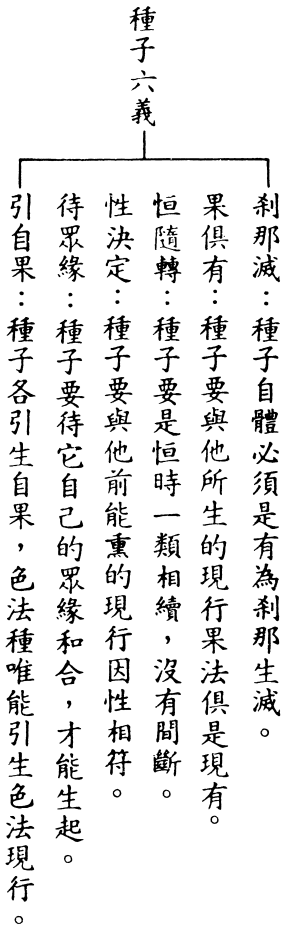 種子六義
剎那滅：種子自體必須是有為剎那生滅。
果俱有：種子要與他所生的現行果法俱是現有。
恒隨轉：種子要是恒時一類相續，沒有間斷。
性決定：種子要與他前能熏的現行因性相符。
待眾緣：種子要待它自己的眾緣和合，才能生起。
引自果：種子各引生自果，色法種唯能引生色法現行。